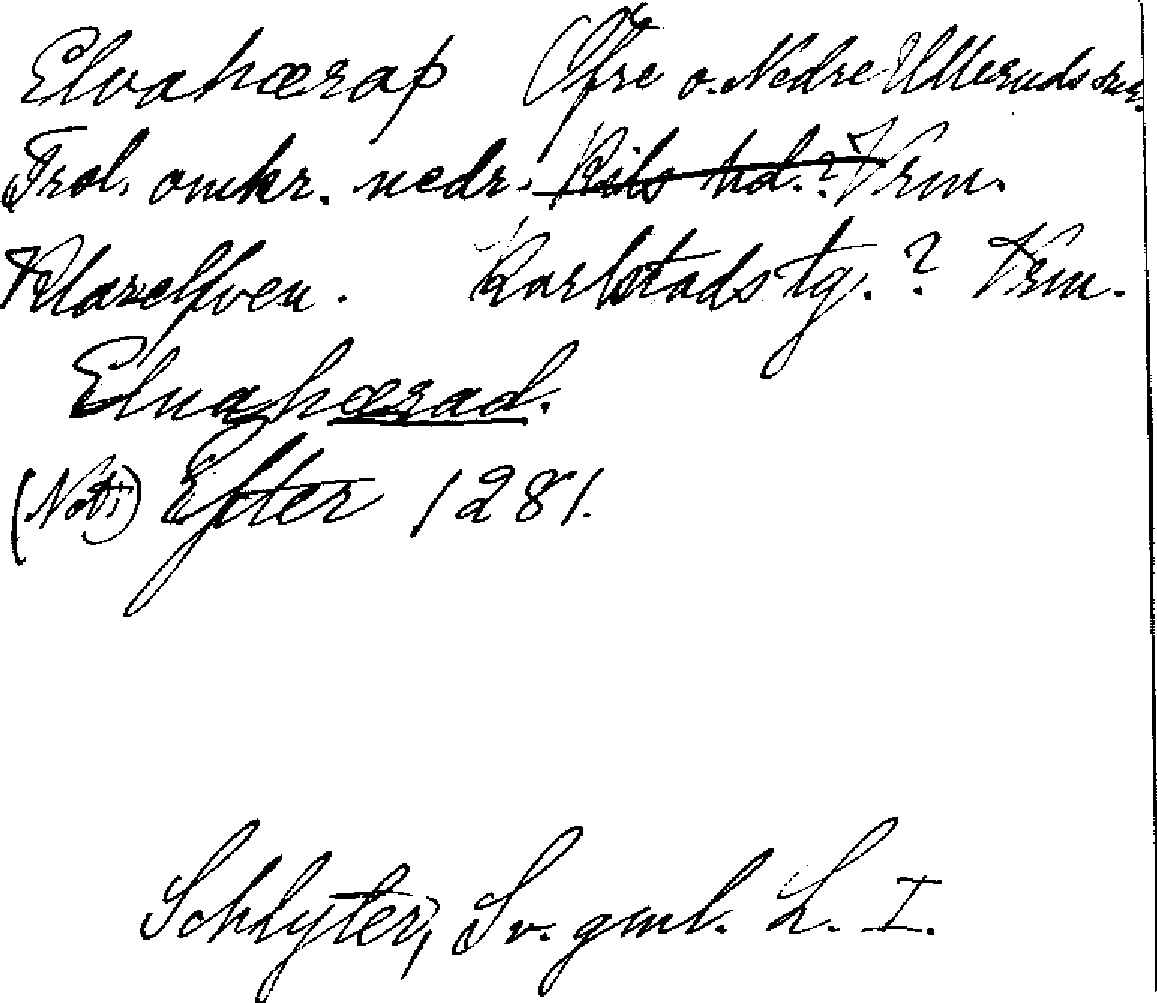 Elvahæraþ Öfre o. Nedre Ulleruds snr.
Trol. omkr. nedr. Kils hd.? Vrm.
Klarelfven. Karlstads tg.? Vrm.
Eluahærad.
(Not.) Efter 1281.
Schlyter, Sv. gml. L. I.